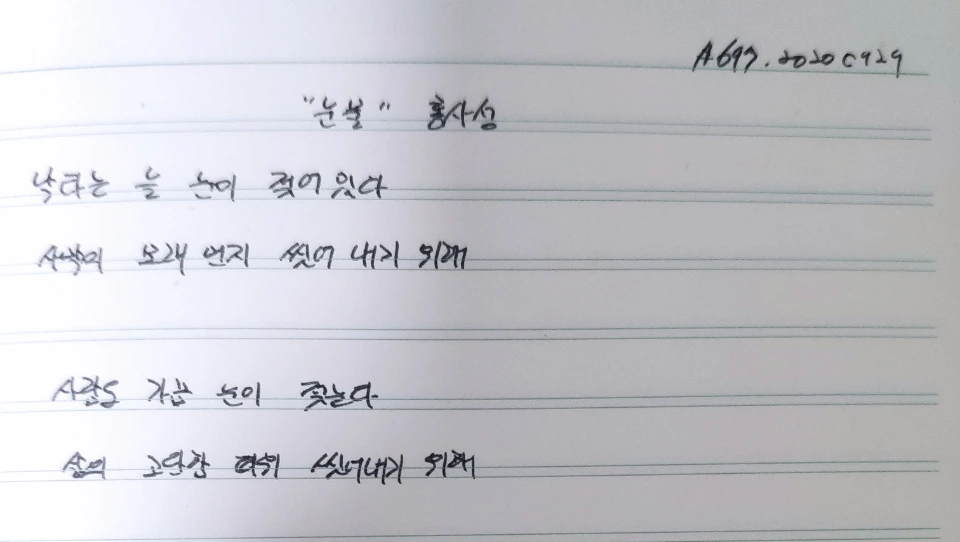 A697. 20200929
"눈물" 홍사성
낙타는 늘 눈이 젖어있다
사막의 모래 먼지 씻어 내기 위해
사람도 가끔 눈이 젖는다
삶의 고단함 따위 씻어내기 위해